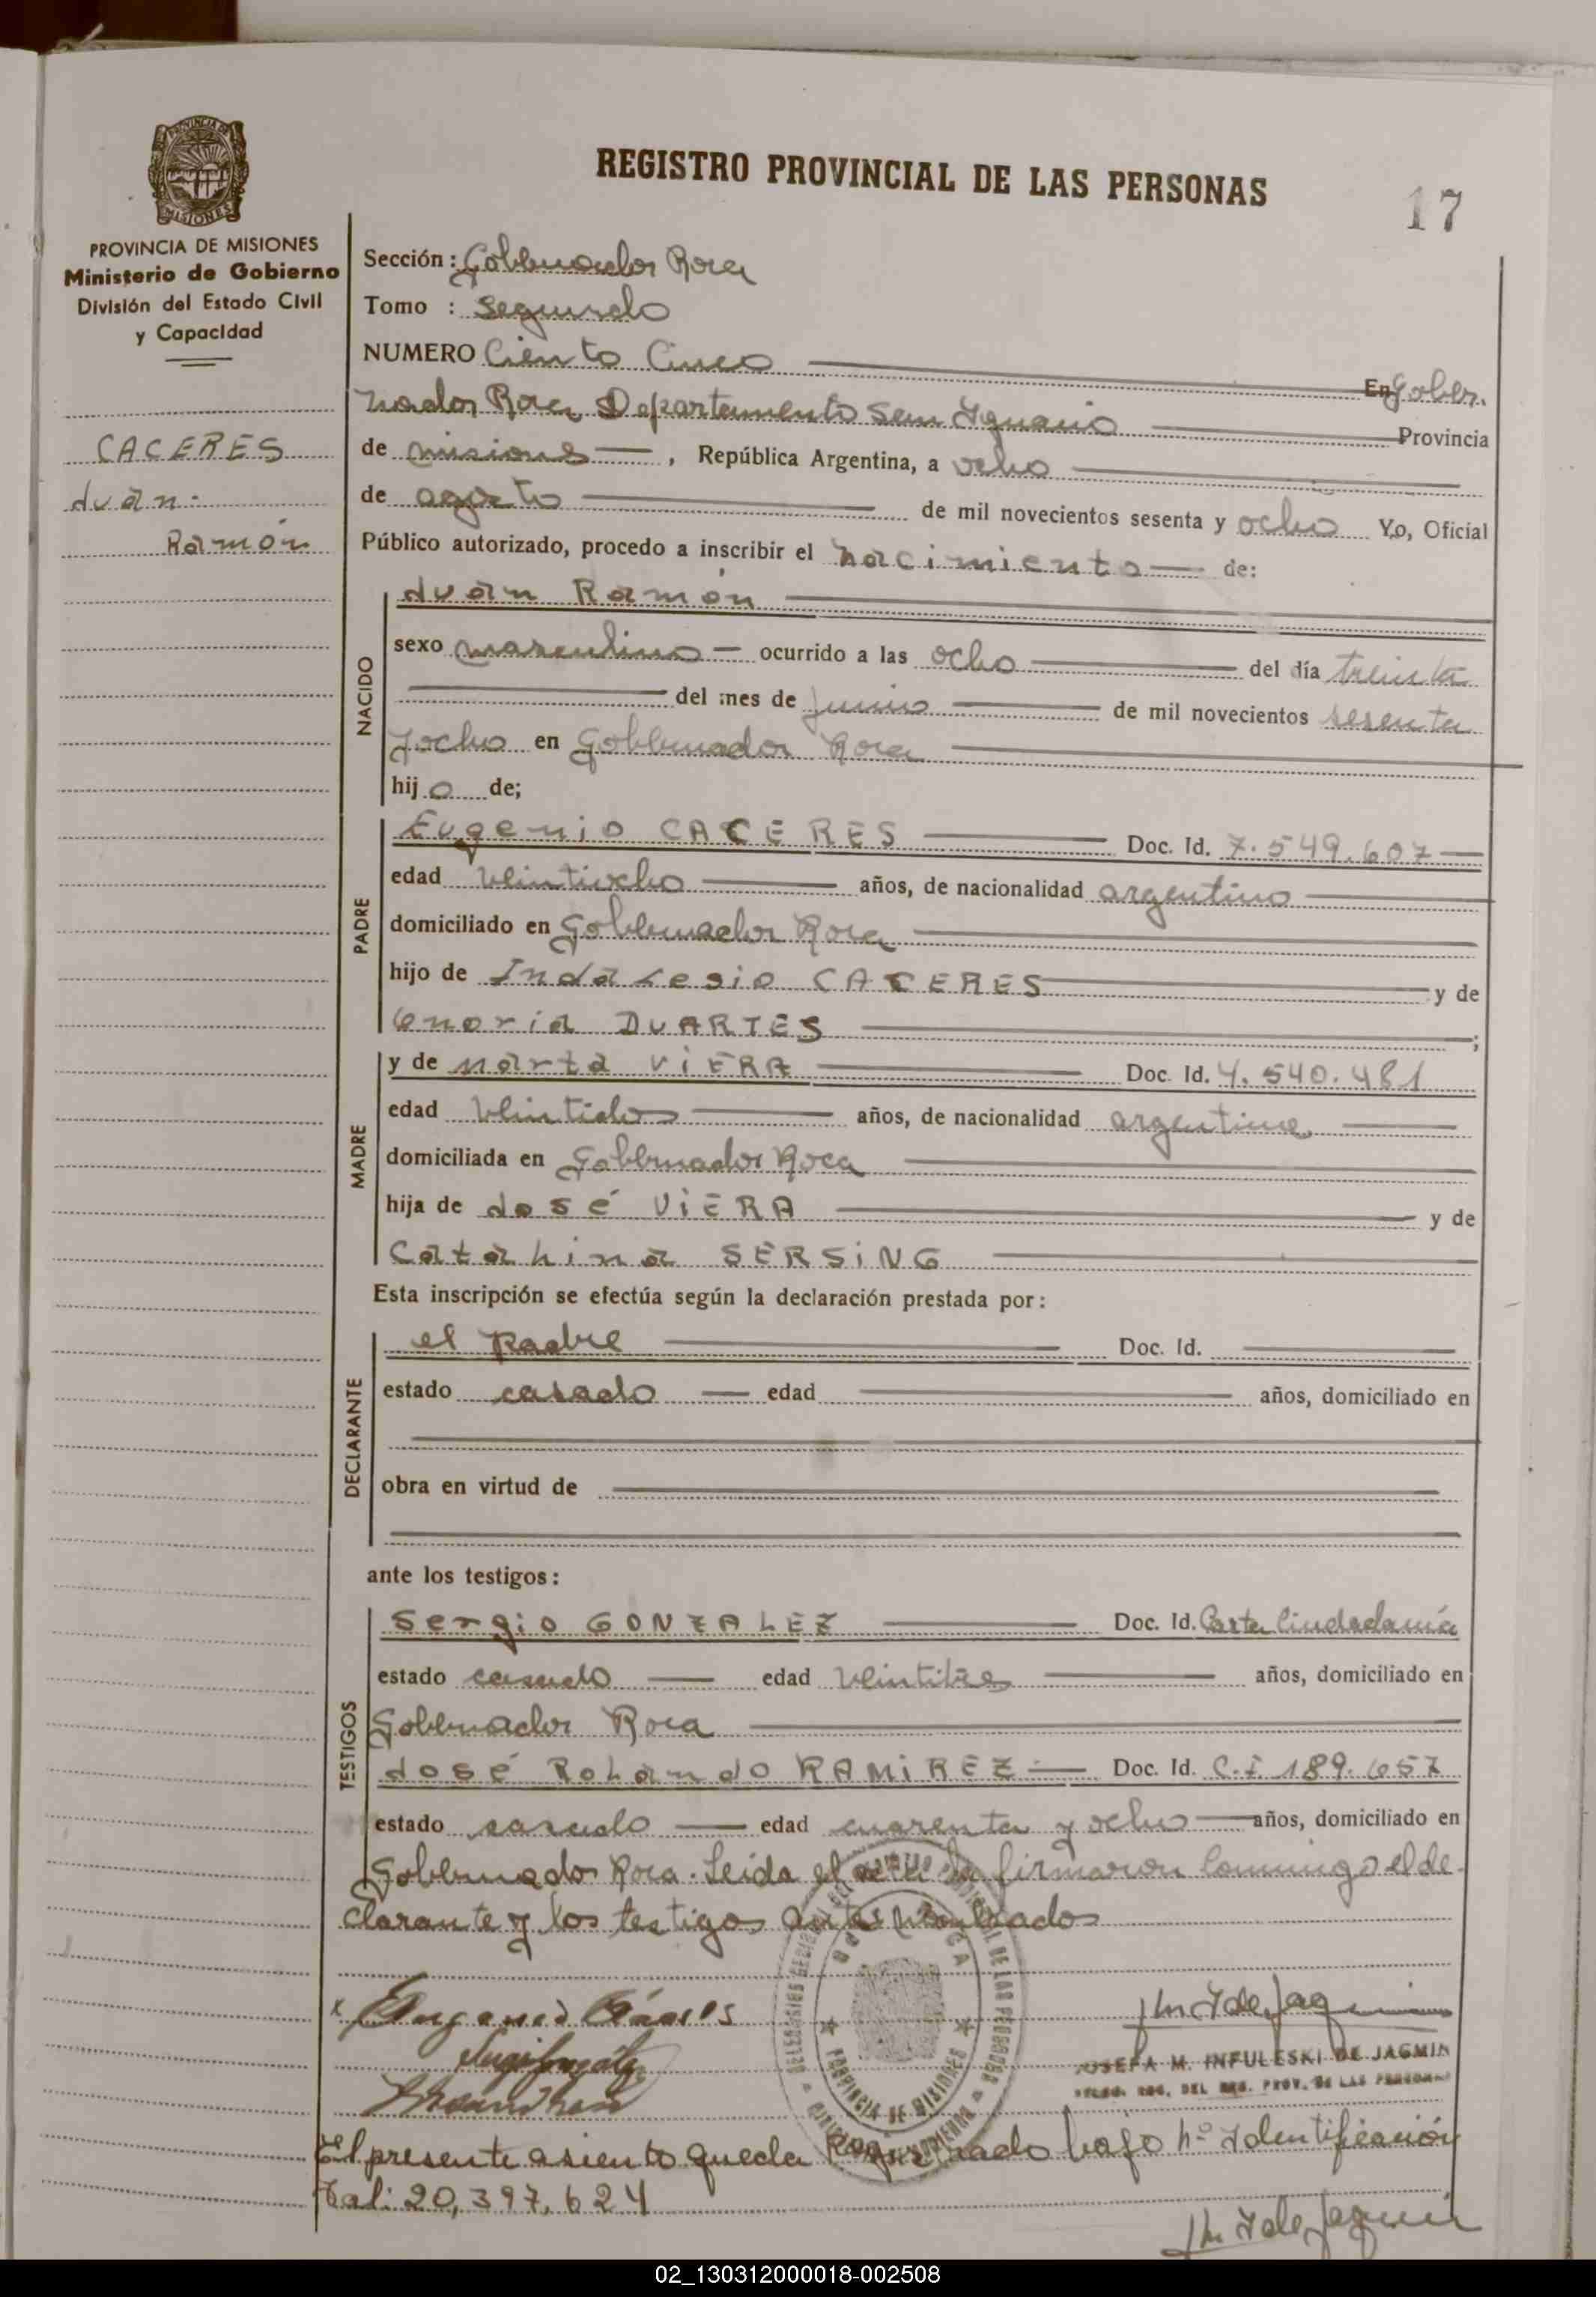 REGISTRO PROVINCIAL DE LAS PERSONAS
17
PROVINCIA DE MISIONES
MISIONES
PROVINCIA DE MISIONES
Ministerio de Gobierno
División del Estado Civil
y Capacidad
CACERES
Juan
Ramón
Sección: Gobernador Roca
Tomo : Segundo
NUMERO Ciento Cinco En Gober.
nador Roca Departamento San Ignacio Provincia
de Misiones, República Argentina, a ocho
de agosto de mil novecientos sesenta y ocho Yo, Oficial
Público autorizado, procedo a inscribir el nacimiento de:
NACIDO
Juan Ramón
sexo masculino ocurrido a las ocho del día treinta
del mes de Junio de mil novecientos sesenta
y ocho en Gobernador Roca
hijo de;
PADRE
Eugenio CACERES Doc. Id. 7.549.607
edad veintiocho años, de nacionalidad argentino
domiciliado en Gobernador Roca
hijo de Indalesio CACERES y de
Onoria DUARTES ;
MADRE
y de Marta VIERA Doc. Id. 4.540.481
edad veintidos años, de nacionalidad argentina
domiciliada en Gobernador Roca
hija de José VIERA y de
Catalina SERSING
Esta inscripción se efectúa según la declaración prestada por:
DECLARANTE
el padre Doc. Id.
estado casado edad años, domiciliado en
obra en virtud de
ante los testigos:
TESTIGOS
Sergio GONZALEZ Doc. Id. Carta Ciudadanía
estado casado edad veintitres años, domiciliado en
Gobernador Roca
José Rolando RAMIREZ Doc. Id. C.I. 189.657
estado casado edad cuarenta y ocho años, domiciliado en
Gobernador Roca. Leida el acta la firmaron conmigo el de-
clarante y los testigos antes nombrados
Eugenio Cáceres
JOSEFA M. INFULESKI DE JAGMIN
DEL REG. PROV. DE LAS PERSONAS
PROVINCIA DE MISIONES
El presente asiento queda Registrado bajo nº Identificación
Tal: 20,397,624
02_130312000018-002508